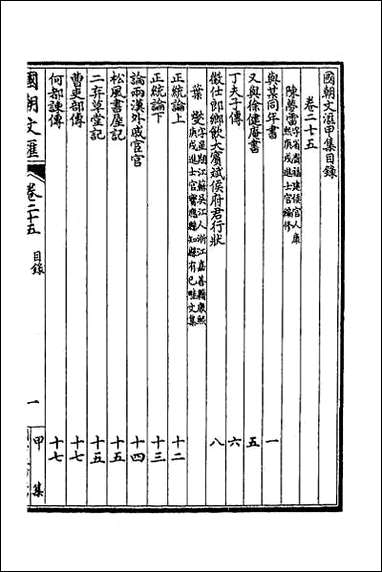 國朝文滙甲集目錄
卷二十五
陳夢雷 字省齋福建侯官人康熙庚戌進士官編修
與某同年書 一
又與徐健庵書 五
丁夫子傳 六
徵仕郎鄉飲大賓斌侯府君行狀 八
葉燮 字星期江蘇吳江人浙江嘉善籍康熙庚戌進士官寶應縣知縣有已畦文集
正統論上 十二
正統論下 十三
論兩漢外戚宦官 十四
松風書屋記 十五
二弃草堂記 十五
曹吏部傳 十七
何都諫傳 十七
國朝文匯
卷二十五
目錄
一
甲集